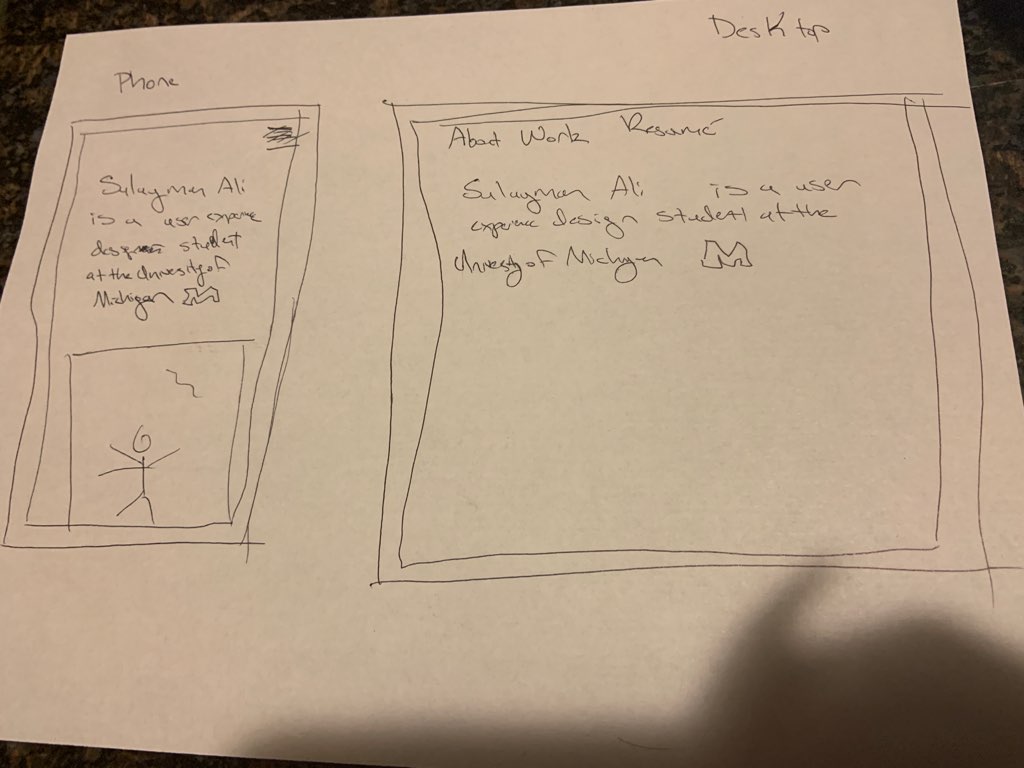 Phone
Sulayman Ali
is a user experience
design student
at the University of
Michigan M
Desktop
About Work Resumé
Sulayman Ali is a user
experience design student at the
University of Michigan M